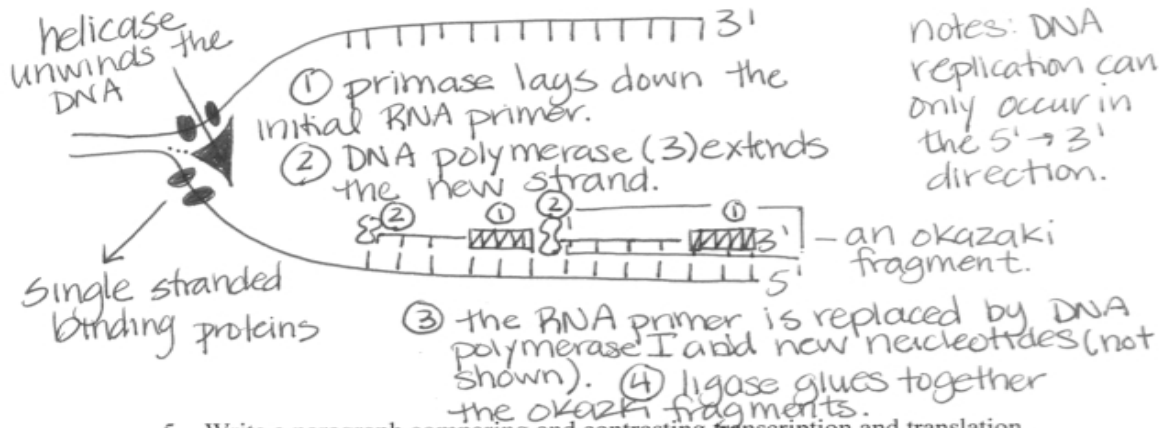 helicase
unwinds the
DNA
3'
① primase lays down the
initial RNA primer.
② DNA polymerase (3) extends
the new strand.
notes: DNA
replication can
only occur in
the 5' → 3'
direction.
② ① ② ①
3'
5'
– an okazaki
fragment.
single stranded
binding proteins
③ the RNA primer is replaced by DNA
polymerase I and new neucleotides (not
shown). ④ ligase glues together
the okazki fragments.
5. Write a paragraph comparing and contrasting transcription and translation